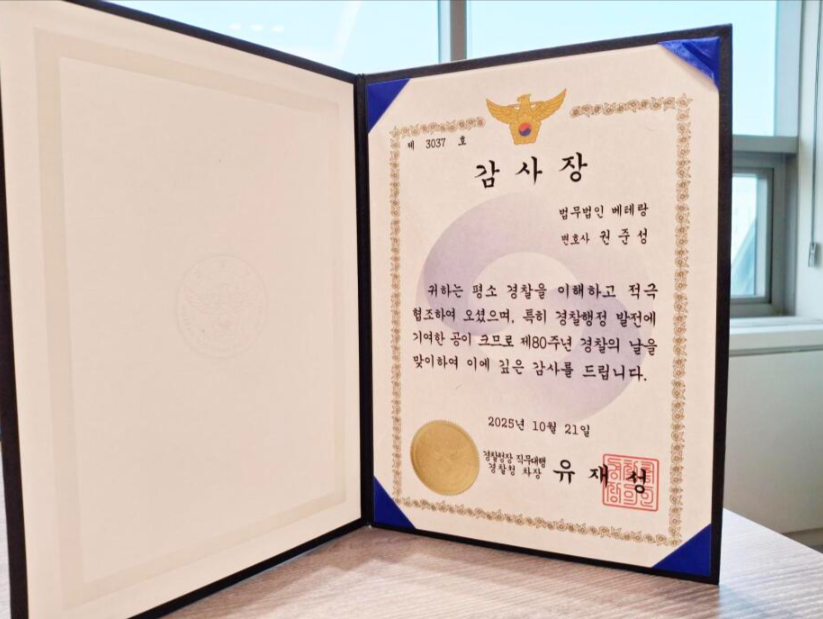 제 3037 호
감사장
법무법인 베테랑
변호사 권준성
귀하는 평소 경찰을 이해하고 적극
협조하여 오셨으며, 특히 경찰행정 발전에
기여한 공이 크므로 제80주년 경찰의 날을
맞이하여 이에 깊은 감사를 드립니다.
2025년 10월 21일
경찰청장 직무대행
경찰청 차장 유재성